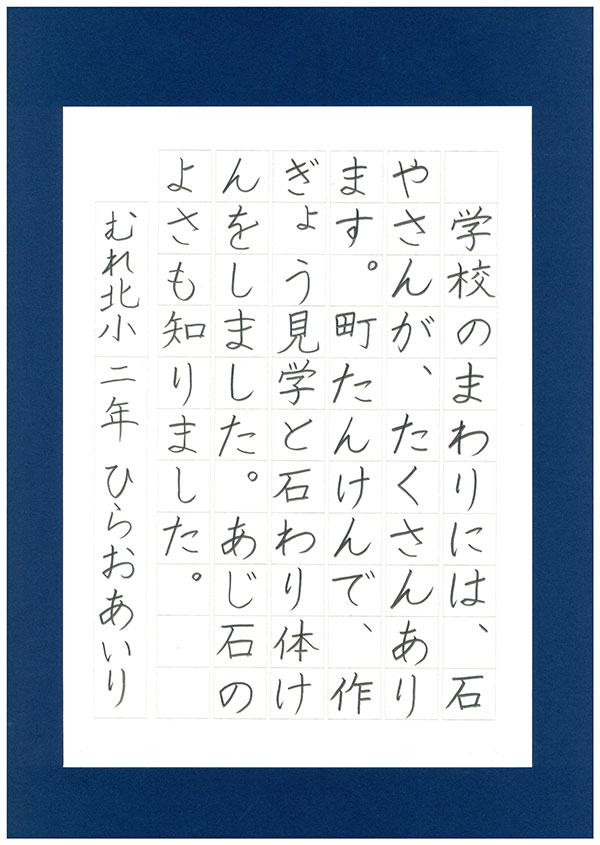 学校のまわりには、石
やさんが、たくさんあり
ます。町たんけんで、作
ぎょう見学と石わり体け
んをしました。あじ石の
よさも知りました。
むれ北小 二年 ひらおあいり